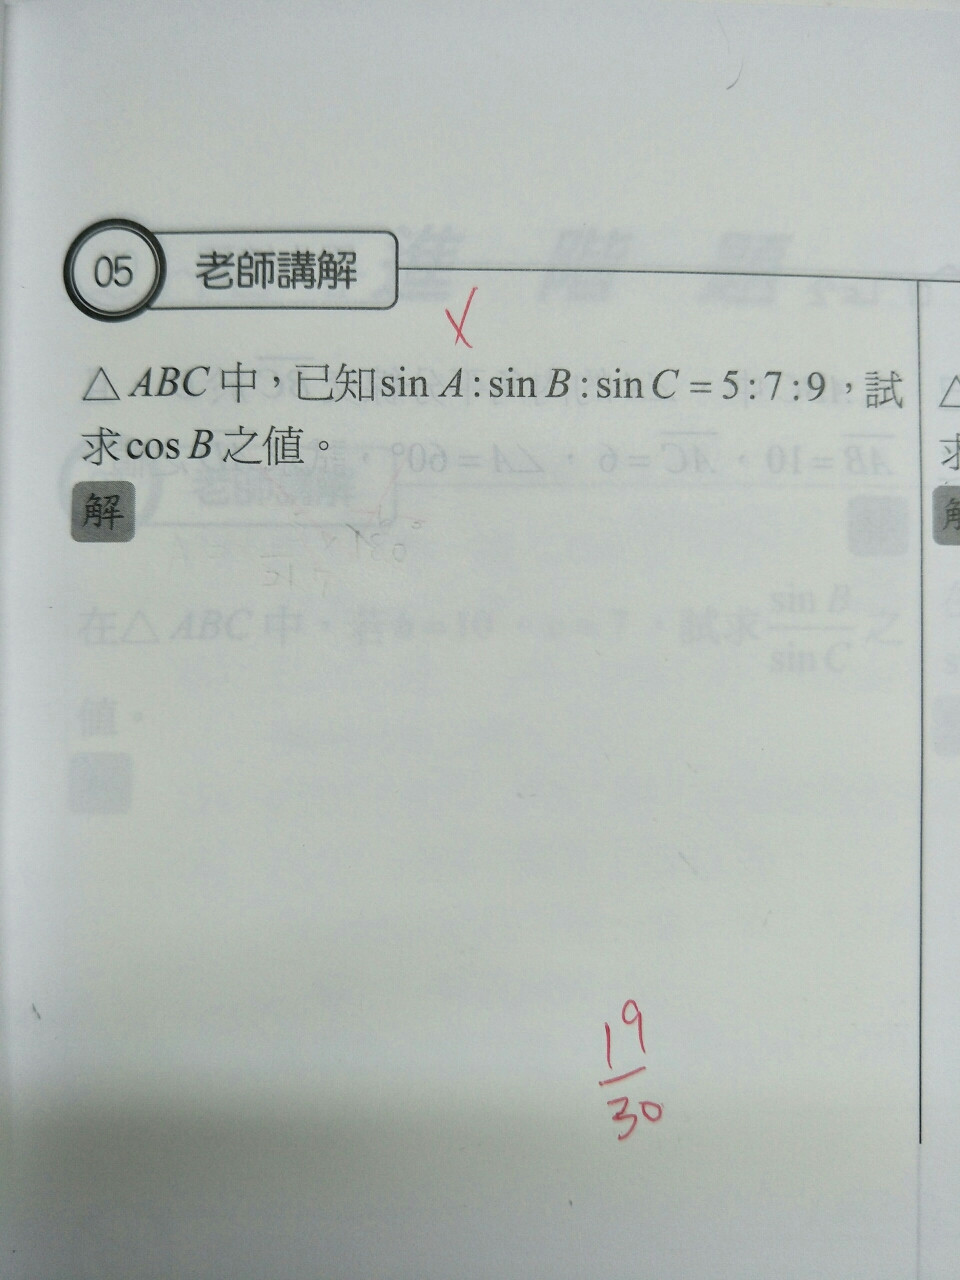 05 老師講解
X
△ABC中，已知sin A:sin B:sin C=5:7:9，試
求cos B之值。
解
19
30